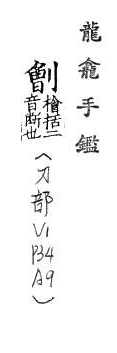 龍龕手鑑
劊檜括二音斷也（刀部V1P34A9）